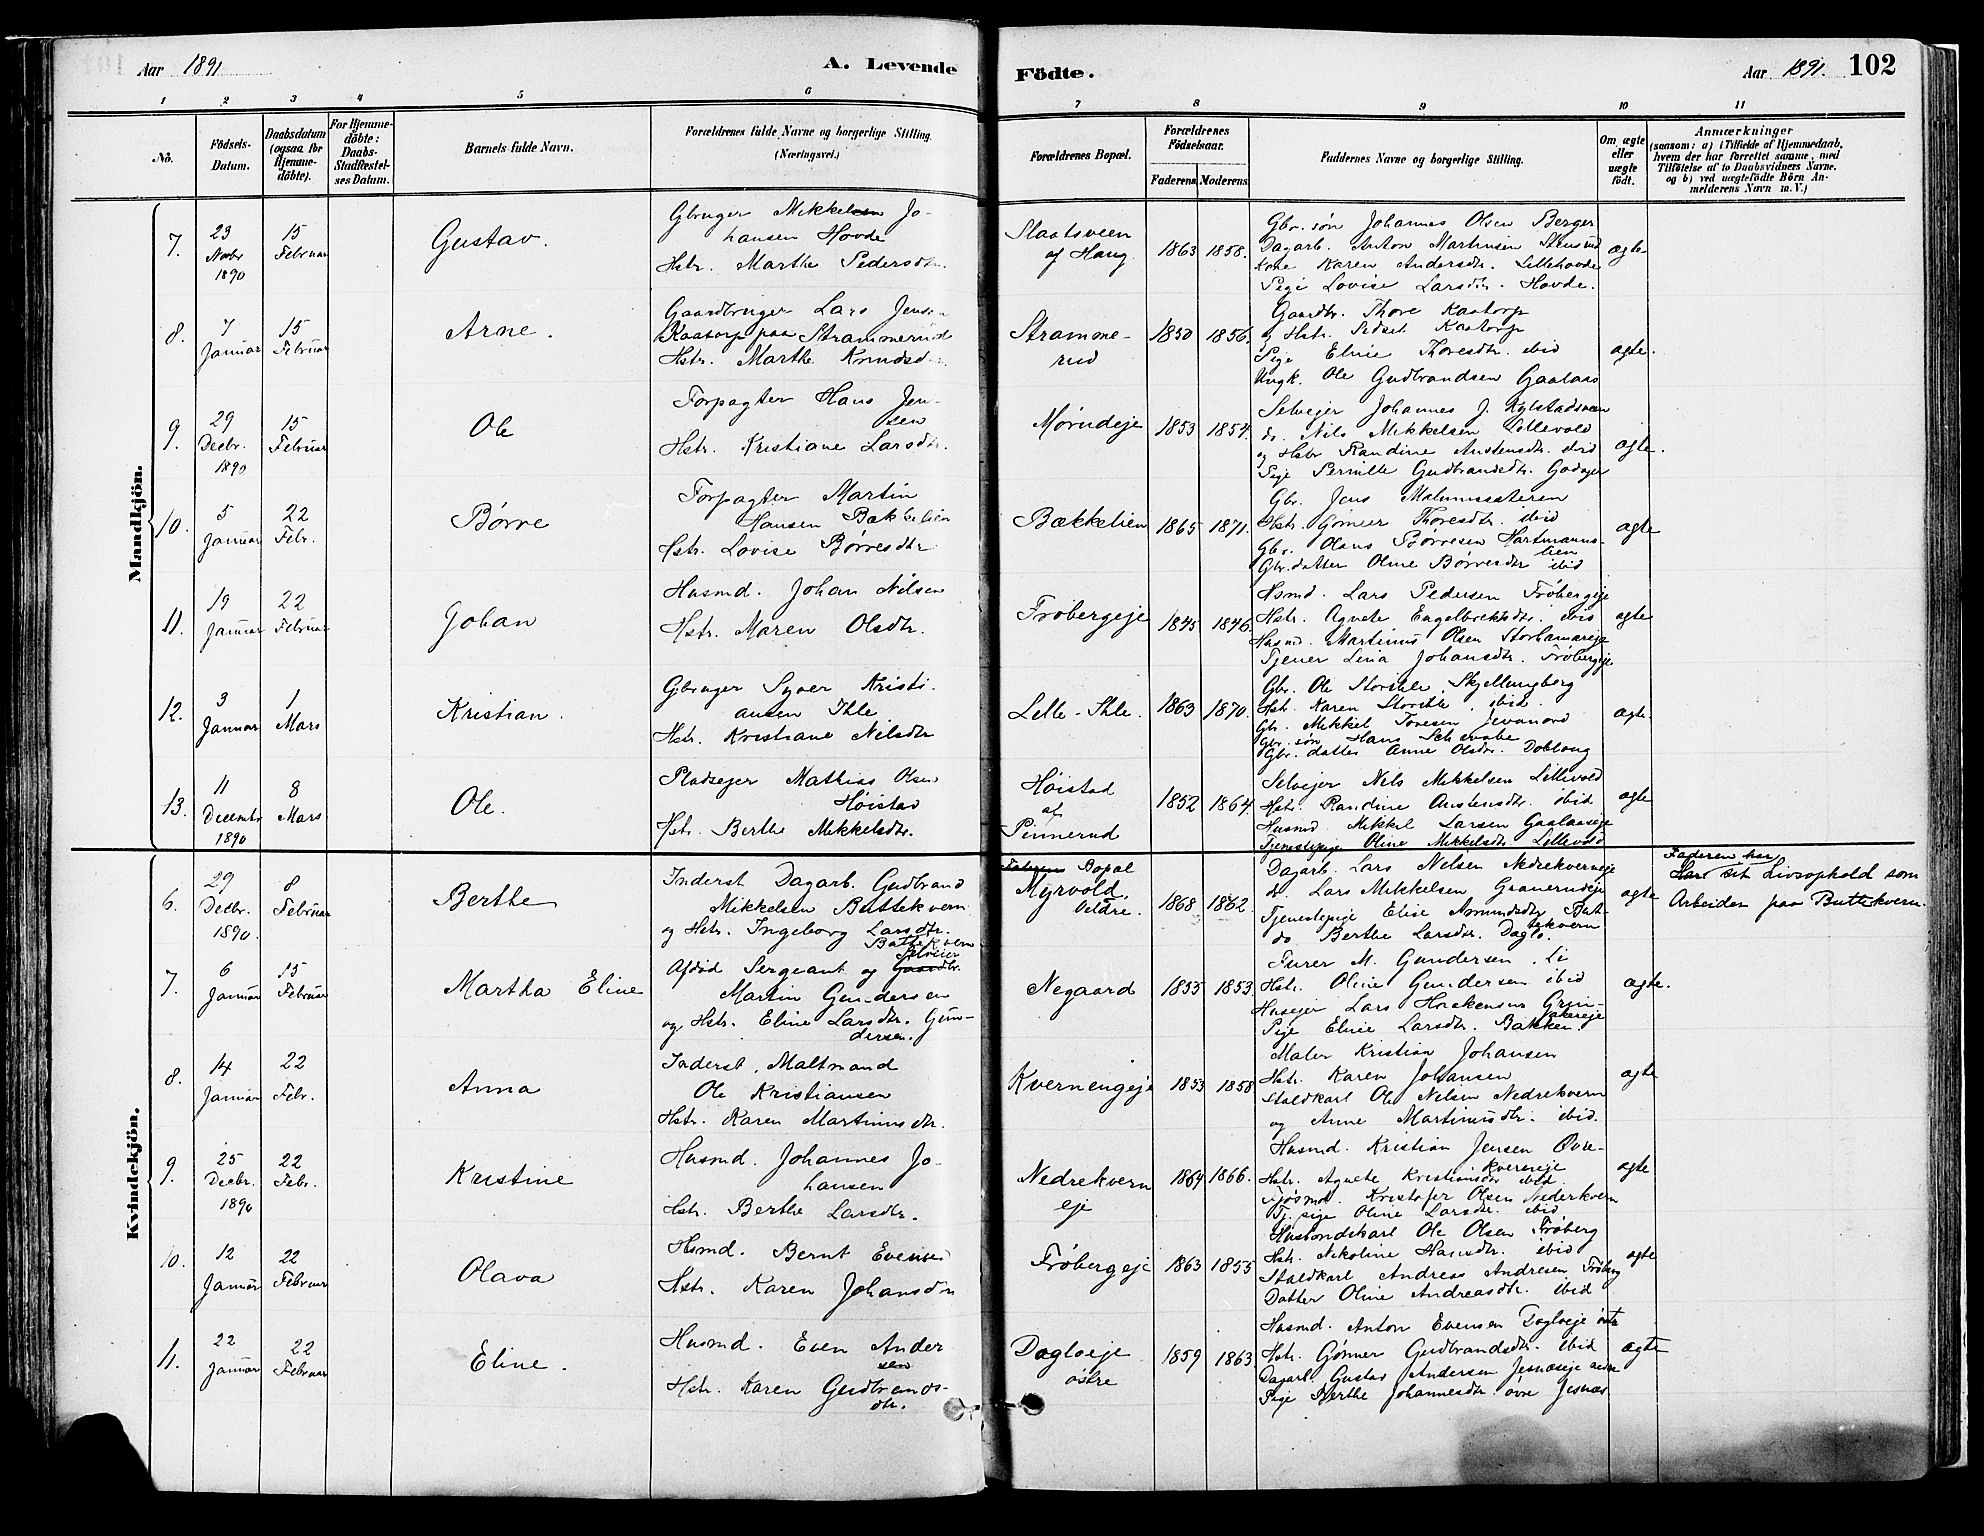 Aar 1891
A. Levende
Födte.
Aar 1891. 102
1 2 3 4 5 6 7 8 9 10 11
No.
Födsels-Datum.
Daabsdatum (ogsaa for Hjemme-döbte).
For Hjemme-döbte: Daabs-Stadfæstel-ses Datum.
Barnets fulde Navn.
Forældrenes fulde Navne og borgerlige Stilling. (Næringsvei.)
Forældrenes Bopæl.
Forældrenes Födselsaar.
Faderens Moderens
Faddernes Navne og borgerlige Stilling.
Om ægte eller uægte födt.
Anmærkninger
(saasom: a) i Tilfælde af Hjemmedaab,
hvem der har forrettet samme, med
Tilföielse af to Daabsvidners Navne.
og b) ved uægtefödte Börn An-
melderens Navn m. V.)
Mandkjön.
7. 23 Novbr 1890
15 Februar
Gustav.
Gbruger Mikkel Jo-
hansen Hovde
Hstr. Marthe Pedersdtr.
Staatsveen
af Haug
1863 1858.
Gbr. søn Johannes Olsen Berger
Dagarb. Anton Martinsen Stensrud
Kone Karen Andersdtr. Lillehovde
Pige Lovise Larsdtr. Hovde.
ægte
8. 7 Januar
15 Februar
Arne.
Gaardbruger Lars Jensen
Kaatorp paa Strammerud
Hstr. Marthe Knudsd
Stramme-
rud
1850 1856.
Gaardbr. Thore Kaatorp
og Hstr. Sidsel Kaatorp
Pige Eline Thoresdtr. ibid
Ungk. Ole Gudbrandsen Gaalaas
ægte.
9. 29 Decbr. 1890
15 Februar
Ole
Forpagter Hans Jen-
sen
Hstr. Kristiane Larsdtr.
Mørudeje
1853 1854.
Selvejer Johannes J. Kylstadsveen
do. Nils Mikkelsen Lillevold
og Hstr Randine Austensdtr. ibid
Pige Pernille Gudbrandsdtr. Godager
ægte.
10. 5 Januar
22 Febr.
Børre
Forpagter Martin
Hansen Bækkelien
Hstr. Lovise Børresdtr
Bækkelien
1865 1871.
Gbr. Jens Malumssæteren
Hstr. Gørner Thoresdtr. ibid
Gbr. Olaus Børresen Hartmanns-
lien
Gbr. datter Oline Børresdtr ibid
ægte
11. 19 Januar
22 Februar
Johan
Husmd. Johan Nilsen
Hstr. Maren Olsdtr.
Frøbergeje
1845 1846.
Hsmd. Lars Pedersen Frøbergeje
Hstr. Agnete Engelbrektsdtr. ibid
Husmd. Martinus Olsen Storhamareje
Tjener Lina Johansdtr. Frøbergeje
ægte
12. 3 Januar
1 Mars
Kristian.
Gbruger Syver Kristi-
ansen Ihle
Hstr. Kristiane Nilsdtr
Lille-Ihle.
1863 1870.
Gbr. Ole Storihle, Skjellungberg
Hst. Karen Storihle, ibid.
Gbr. Mikkel Toresen Jevanord
Gbr. søn Hans Schevabe
Gbr. datter Anne Olsdtr. Doblaug
ægte.
13. 11 Decembr 1890
8 Mars
Ole.
Pladsejer Mathias Olsen
Høistad
Hstr. Berthe Mikkelsdtr.
Høistad
af
Pinnerud
1852 1864.
Selvejer Nils Mikkelsen Lillevold
Hstr. Randine Austensdtr. ibid
Husmd. Mikkel Larsen Gaalaaseje
Tjenestepige Oline Mikkelsdtr Lillevold
ægte
Kvindekjön.
6. 29 Decbr. 1890.
8 Februar
Berthe
Inderst Dagarb. Gudbrand
Mikkelsen Buttekvern
og Hstr. Ingeborg Larsdtr.
Buttekvern
Faderens Bopæl
Myrvold,
Veldre.
1868 1862.
Dagarb. Lars Nilsen Nedrekverneje
do. Lars Mikkelsen Graverudeje
Tjenestepige Elise Amundsdtr. But-
tekvern
do Berthe Larsdtr. Daglo.
ægte
Faderen har
Har sit Livsophold som
Arbeider paa Buttekvern.
7. 6 Januar
15 Februar
Martha Eline
Selveier
Afdød Sergeant og Gaardbr.
Martin Gundersen
og Hstr. Eline Larsdtr. Gun-
dersen.
Negaard
1855 1853.
Furer M. Gundersen, Li
Hstr. Oline Gundersen ibid
Husejer Lars Haakensen Grin-
akereje
Pige Eline Larsdtr. Bakken.
ægte.
8. 14 Januar
22 Febr.
Anna
Inderst, Maltmand
Ole Kristiansen
Hstr. Karen Martinusdtr.
Kvernengeje
1853 1858
Maler Kristian Johansen
Hstr. Karen Johansen
Staldkarl Ole Nilsen Nedrekvern
og Anne Martinusdtr. ibid.
ægte
9. 25 Decbr. 1890
22 Febr.
Kristine
Husmd. Johannes Jo-
hansen
Hstr. Berthe Larsdtr.
Nedrekvern
eje
1864 1866.
Husmd. Kristian Jensen Øvre-
kverneje
Hstr. Agnete Kristiansdtr ibid.
Fjøsmd. Kristofer Olsen Nederkvern
Tj. pige Oline Larsdtr. ibid.
ægte
10. 12 Januar
22 Februar
Olava
Hsmd. Bernt Evensen
Hstr. Karen Johansdtr
Frøbergeje
1863 1855
Husmdskarl Ole Olsen Frøberg
Hstr. Nikoline Hansdtr. ibid
Staldkarl Andreas Andresen Frøberg
Datter Oline Andreasdtr. ibid
ægte
11. 22 Januar
22 Februar
Eline.
Husmd. Even Ander
sen
Hstr. Karen Gudbrands-
dtr.
Dagloeje
østre
1859 1863.
Husmd. Anton Evensen Dagloeje østre
Hstr. Gørner Gudbrandsdtr. ibid
Dagarb. Gustav Andersen Jesnæseje nedre
Pige Berthe Johannesdtr. øvre Jesnæs
ægte